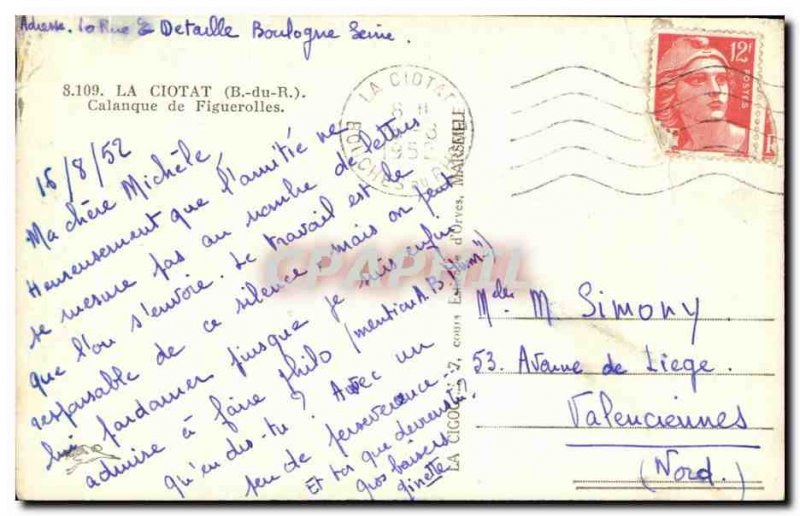 Adresse. 10 Rue E Detaille Boulogne Seine.
8.109. LA CIOTAT (B.-du-R.).
Calanque de Figuerolles.
15/8/52
Ma chère Michèle,
Heureusement que l'amitié ne
se mesure pas au nombre de lettres
que l'on s'envoie. Le travail est de
responsable de ce silence, mais on peut
lui pardonner puisque je suis enfin
admise à faire philo (mention A.B. "hum")
qu'en dis-tu? Avec un
peu de perseverance
Et toi que deviens-tu?
gros baisers
ginette
LA CIGOGNE 7, cours d'Orves, MARSEILLE
LA CIOTAT
BOUCHES DU RHONE
12F
POSTES
M. Simony
53. Avenue de Liege.
Valenciennes
(Nord.)
CPAPHIL